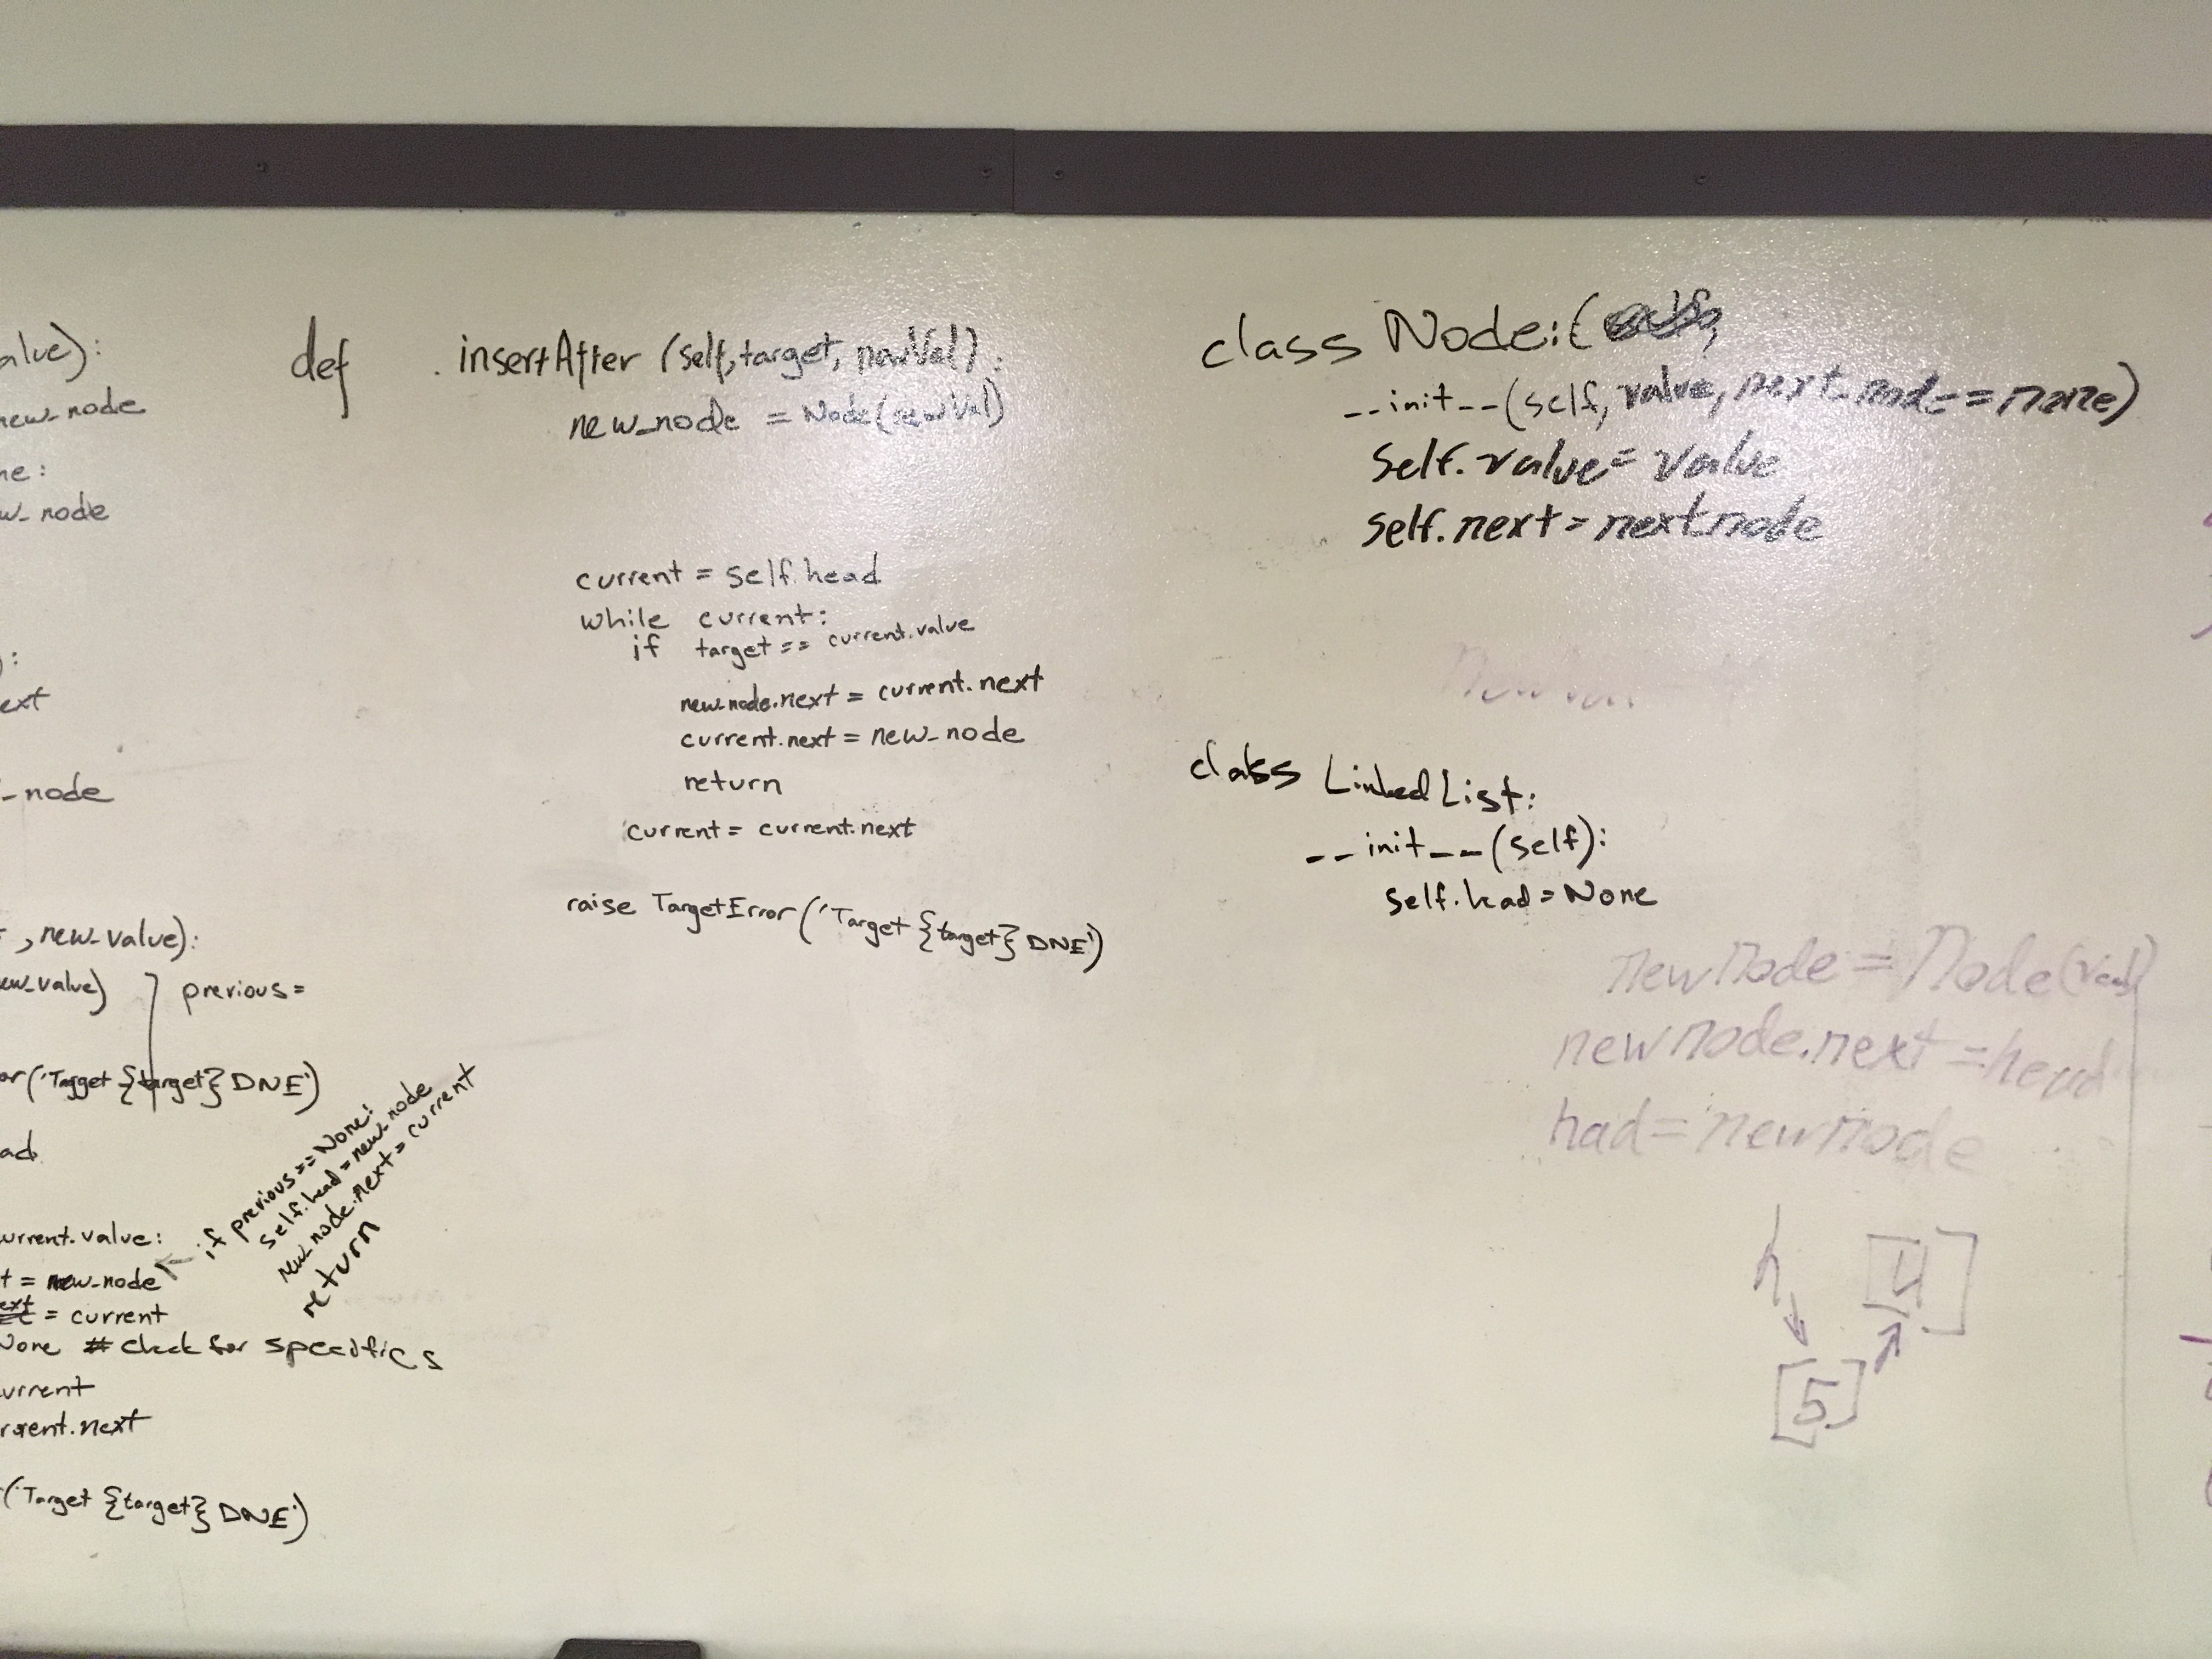 alue):
new_node
ne:
w_node
):
ext
_node
, new_value):
ew_value) previous =
or('Tagget {target} DNE')
ad
if previous == None:
self.head = new_node
new_node.next = current
return
urrent.value:
t = new_node
ext = current
None # check for specifics
urrent
rrent.next
('Target {target} DNE')
def insertAfter (self, target, newVal):
new_node = Node(newVal)
current = self.head
while current:
if target == current.value
new_node.next = current.next
current.next = new_node
return
current = current.next
raise TargetError('Target {target} DNE')
class Node:(
__init__(self, value, next_node==none)
self.value = value
self.next = nextnode
class LinkedList:
__init__(self):
self.head = None
newnode = Node(val)
newnode.next = head
had = newnode
h
[4]
[5]